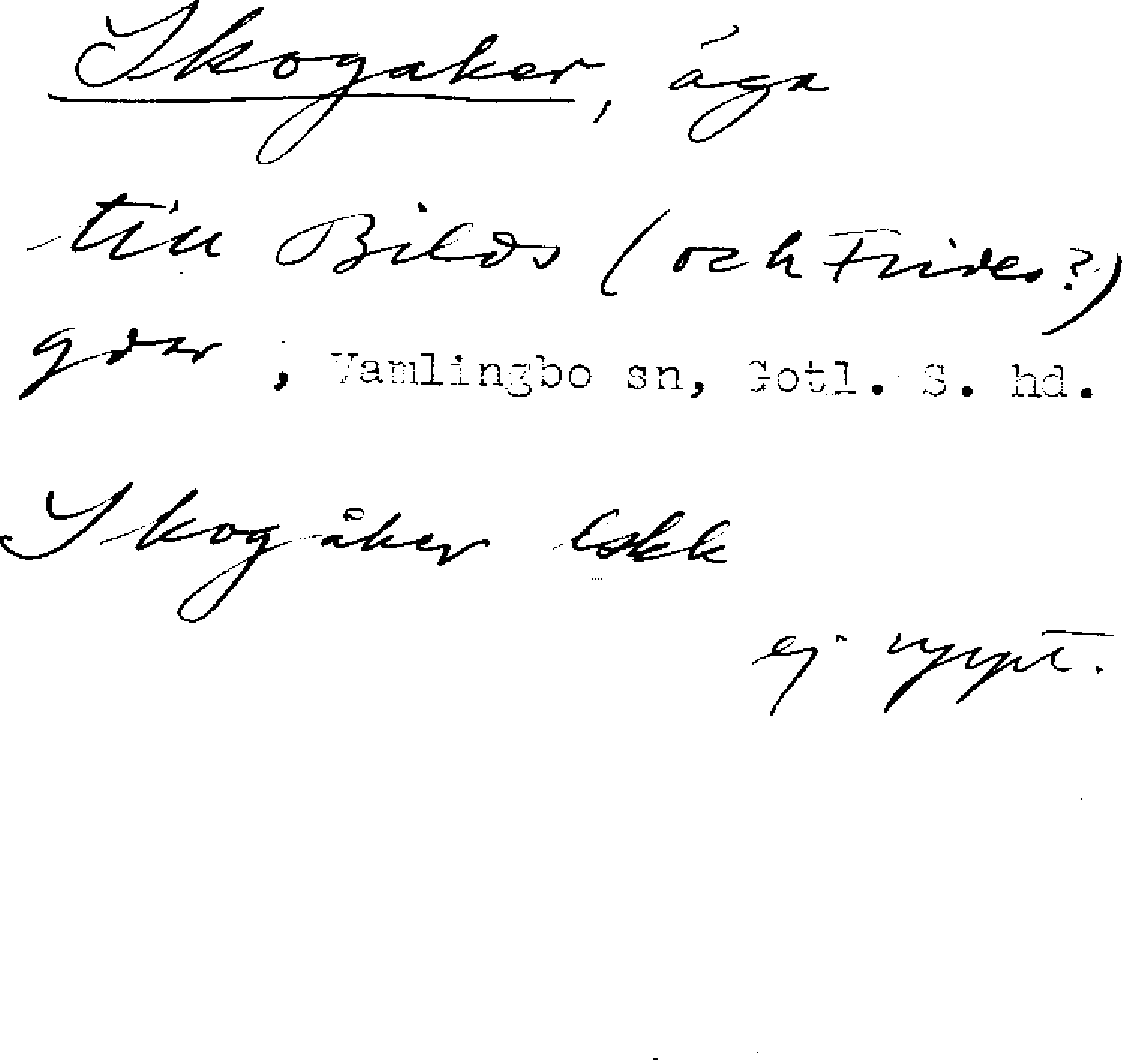 Skogaker, äga
till Bilds (och Frides?)
gdar, Vamlingbo sn, Gotl. S. hd.
Skogåker Lskk
ej uppt.